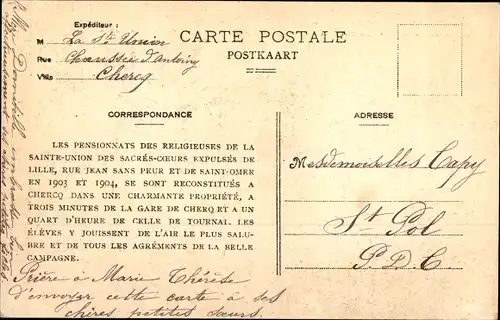 Expéditeur :
M La Ste Union
Rue Chaussée d'Antoing
Ville Chercq
CARTE POSTALE
POSTKAART
CORRESPONDANCE
LES PENSIONNATS DES RELIGIEUSES DE LA
SAINTE-UNION DES SACRÉS-CŒURS EXPULSÉS DE
LILLE, RUE JEAN SANS PEUR ET DE SAINT-OMER
EN 1903 ET 1904, SE SONT RECONSTITUÉS A
CHERCQ DANS UNE CHARMANTE PROPRIÉTÉ, A
TROIS MINUTES DE LA GARE DE CHERQ ET A UN
QUART D'HEURE DE CELLE DE TOURNAI. LES
ÉLÈVES Y JOUISSENT DE L'AIR LE PLUS SALU-
BRE ET DE TOUS LES AGRÉMENTS DE LA BELLE
CAMPAGNE.
Prière à Marie Thérèse
d'envoyer cette carte à ses
chères petites sœurs.
ADRESSE
Mesdemoiselles Capy
St Pol
P. D. C